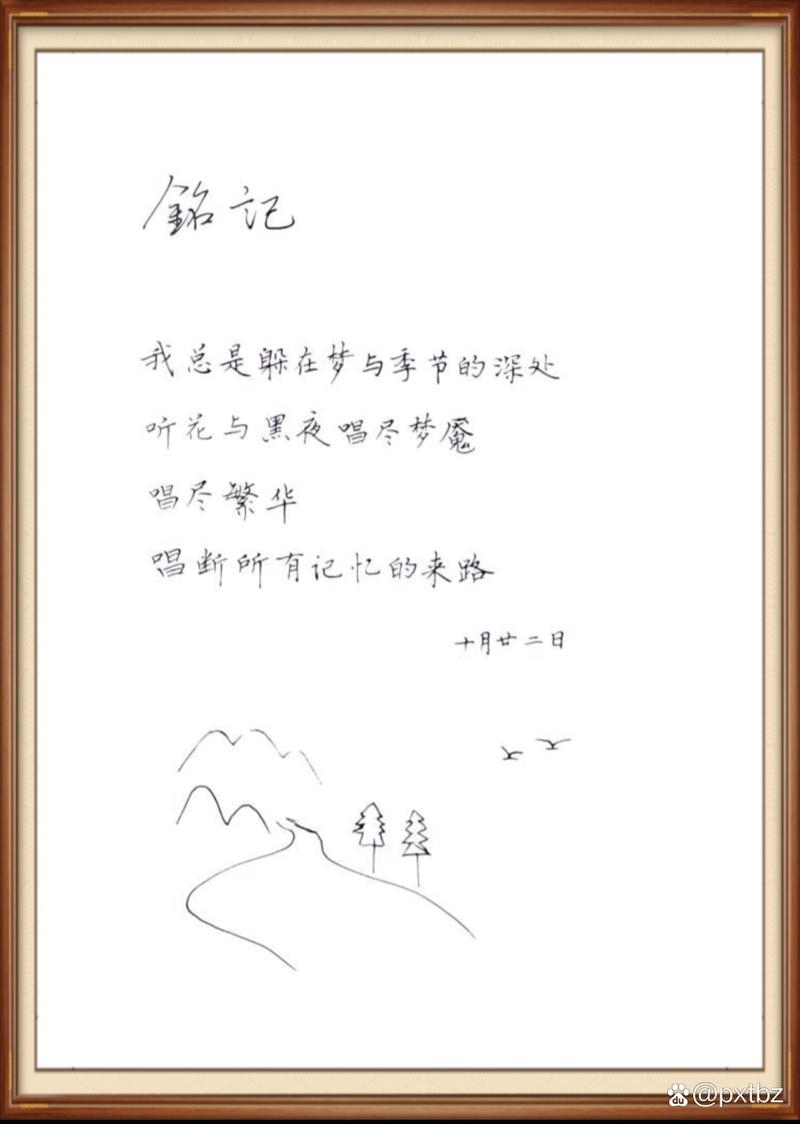 銘记
我总是躲在梦与季节的深处
听花与黑夜唱尽梦魇
唱尽繁华
唱断所有记忆的来路
十月廿二日
du @pxtbz